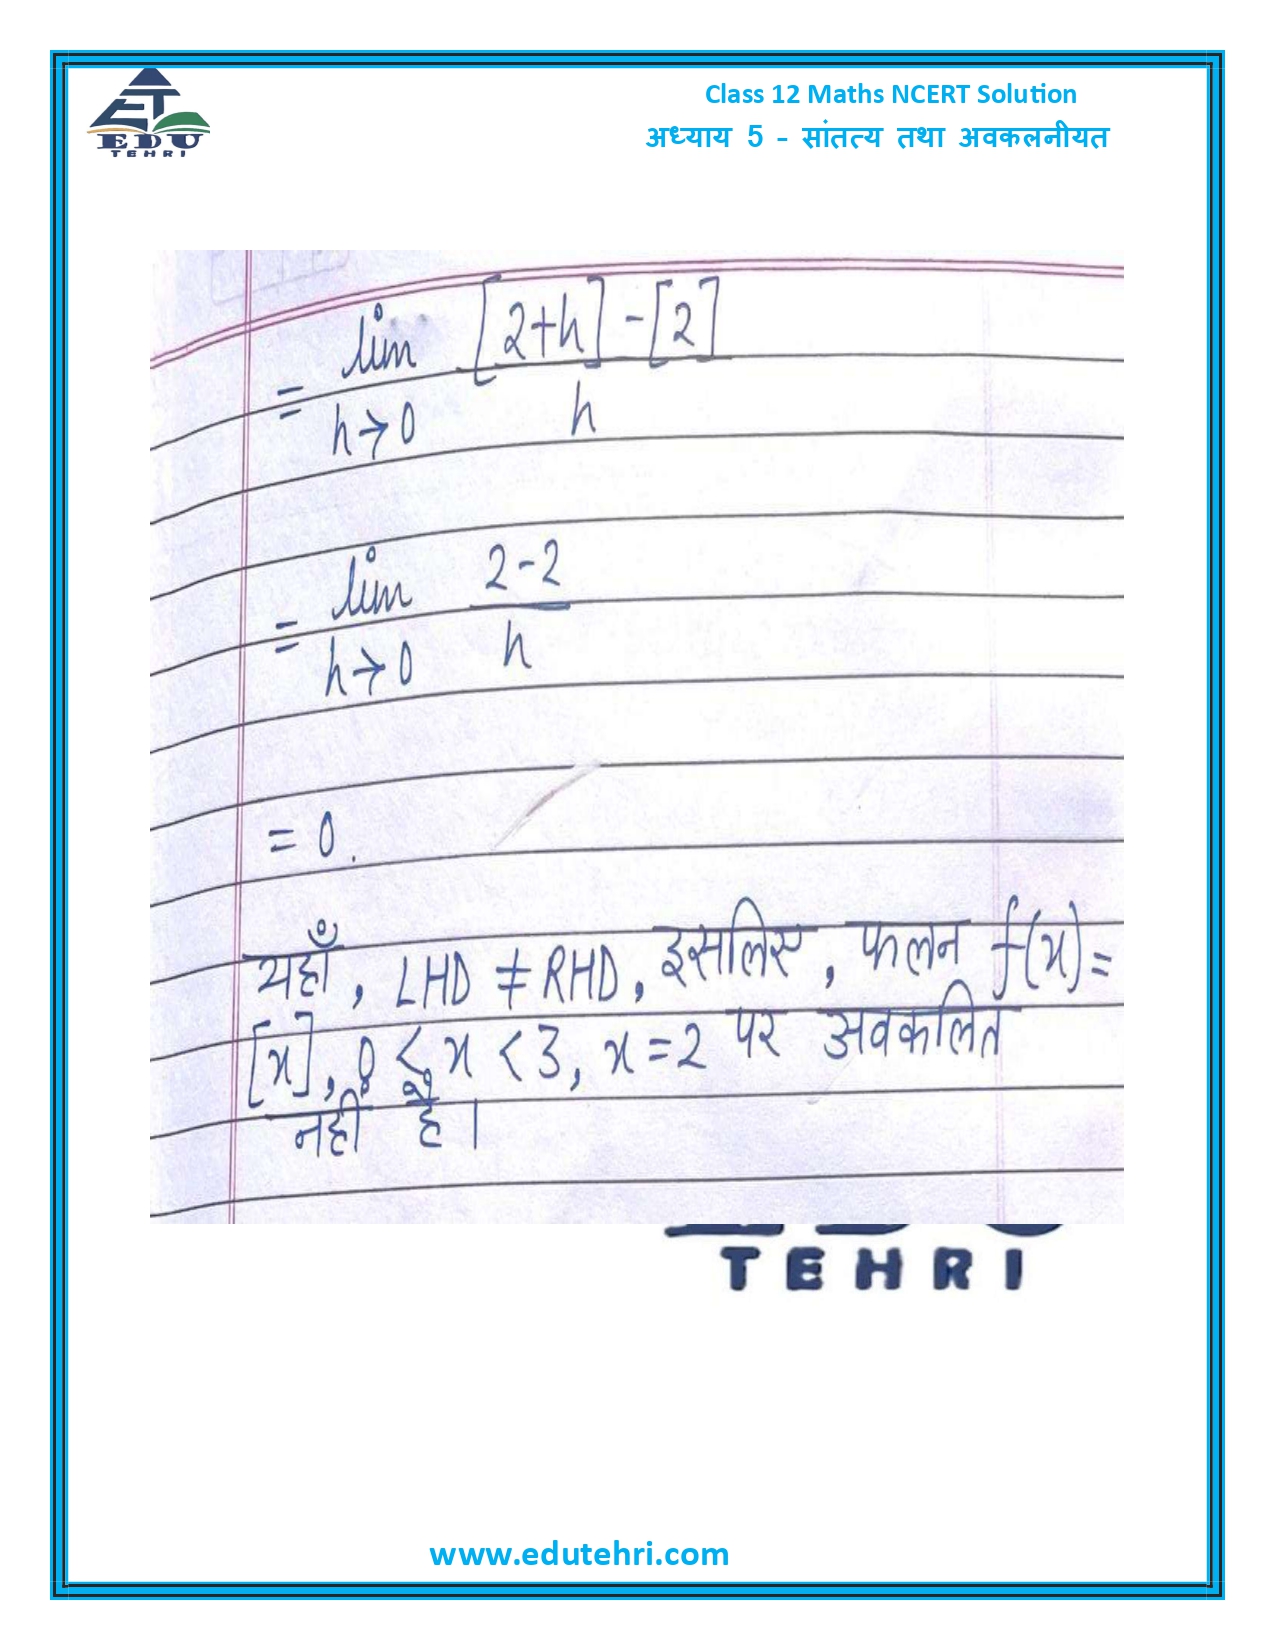 EDU
TEHRI
Class 12 Maths NCERT Solution
अध्याय 5 - सांतत्य तथा अवकलनीयत
= lim h→0 [2+h] - [2] / h
= lim h→0 2-2 / h
= 0.
यहाँ, LHD ≠ RHD, इसलिए, फलन f(x) =
[x], 0 < x < 3, x = 2 पर अवकलित
नहीं है।
TEHRI
www.edutehri.com